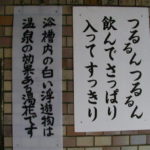 つるるんつるるん
飲んでさっぱり
入ってすっきり
浴槽内の白い浮遊物は
温泉の効果ある湯花です